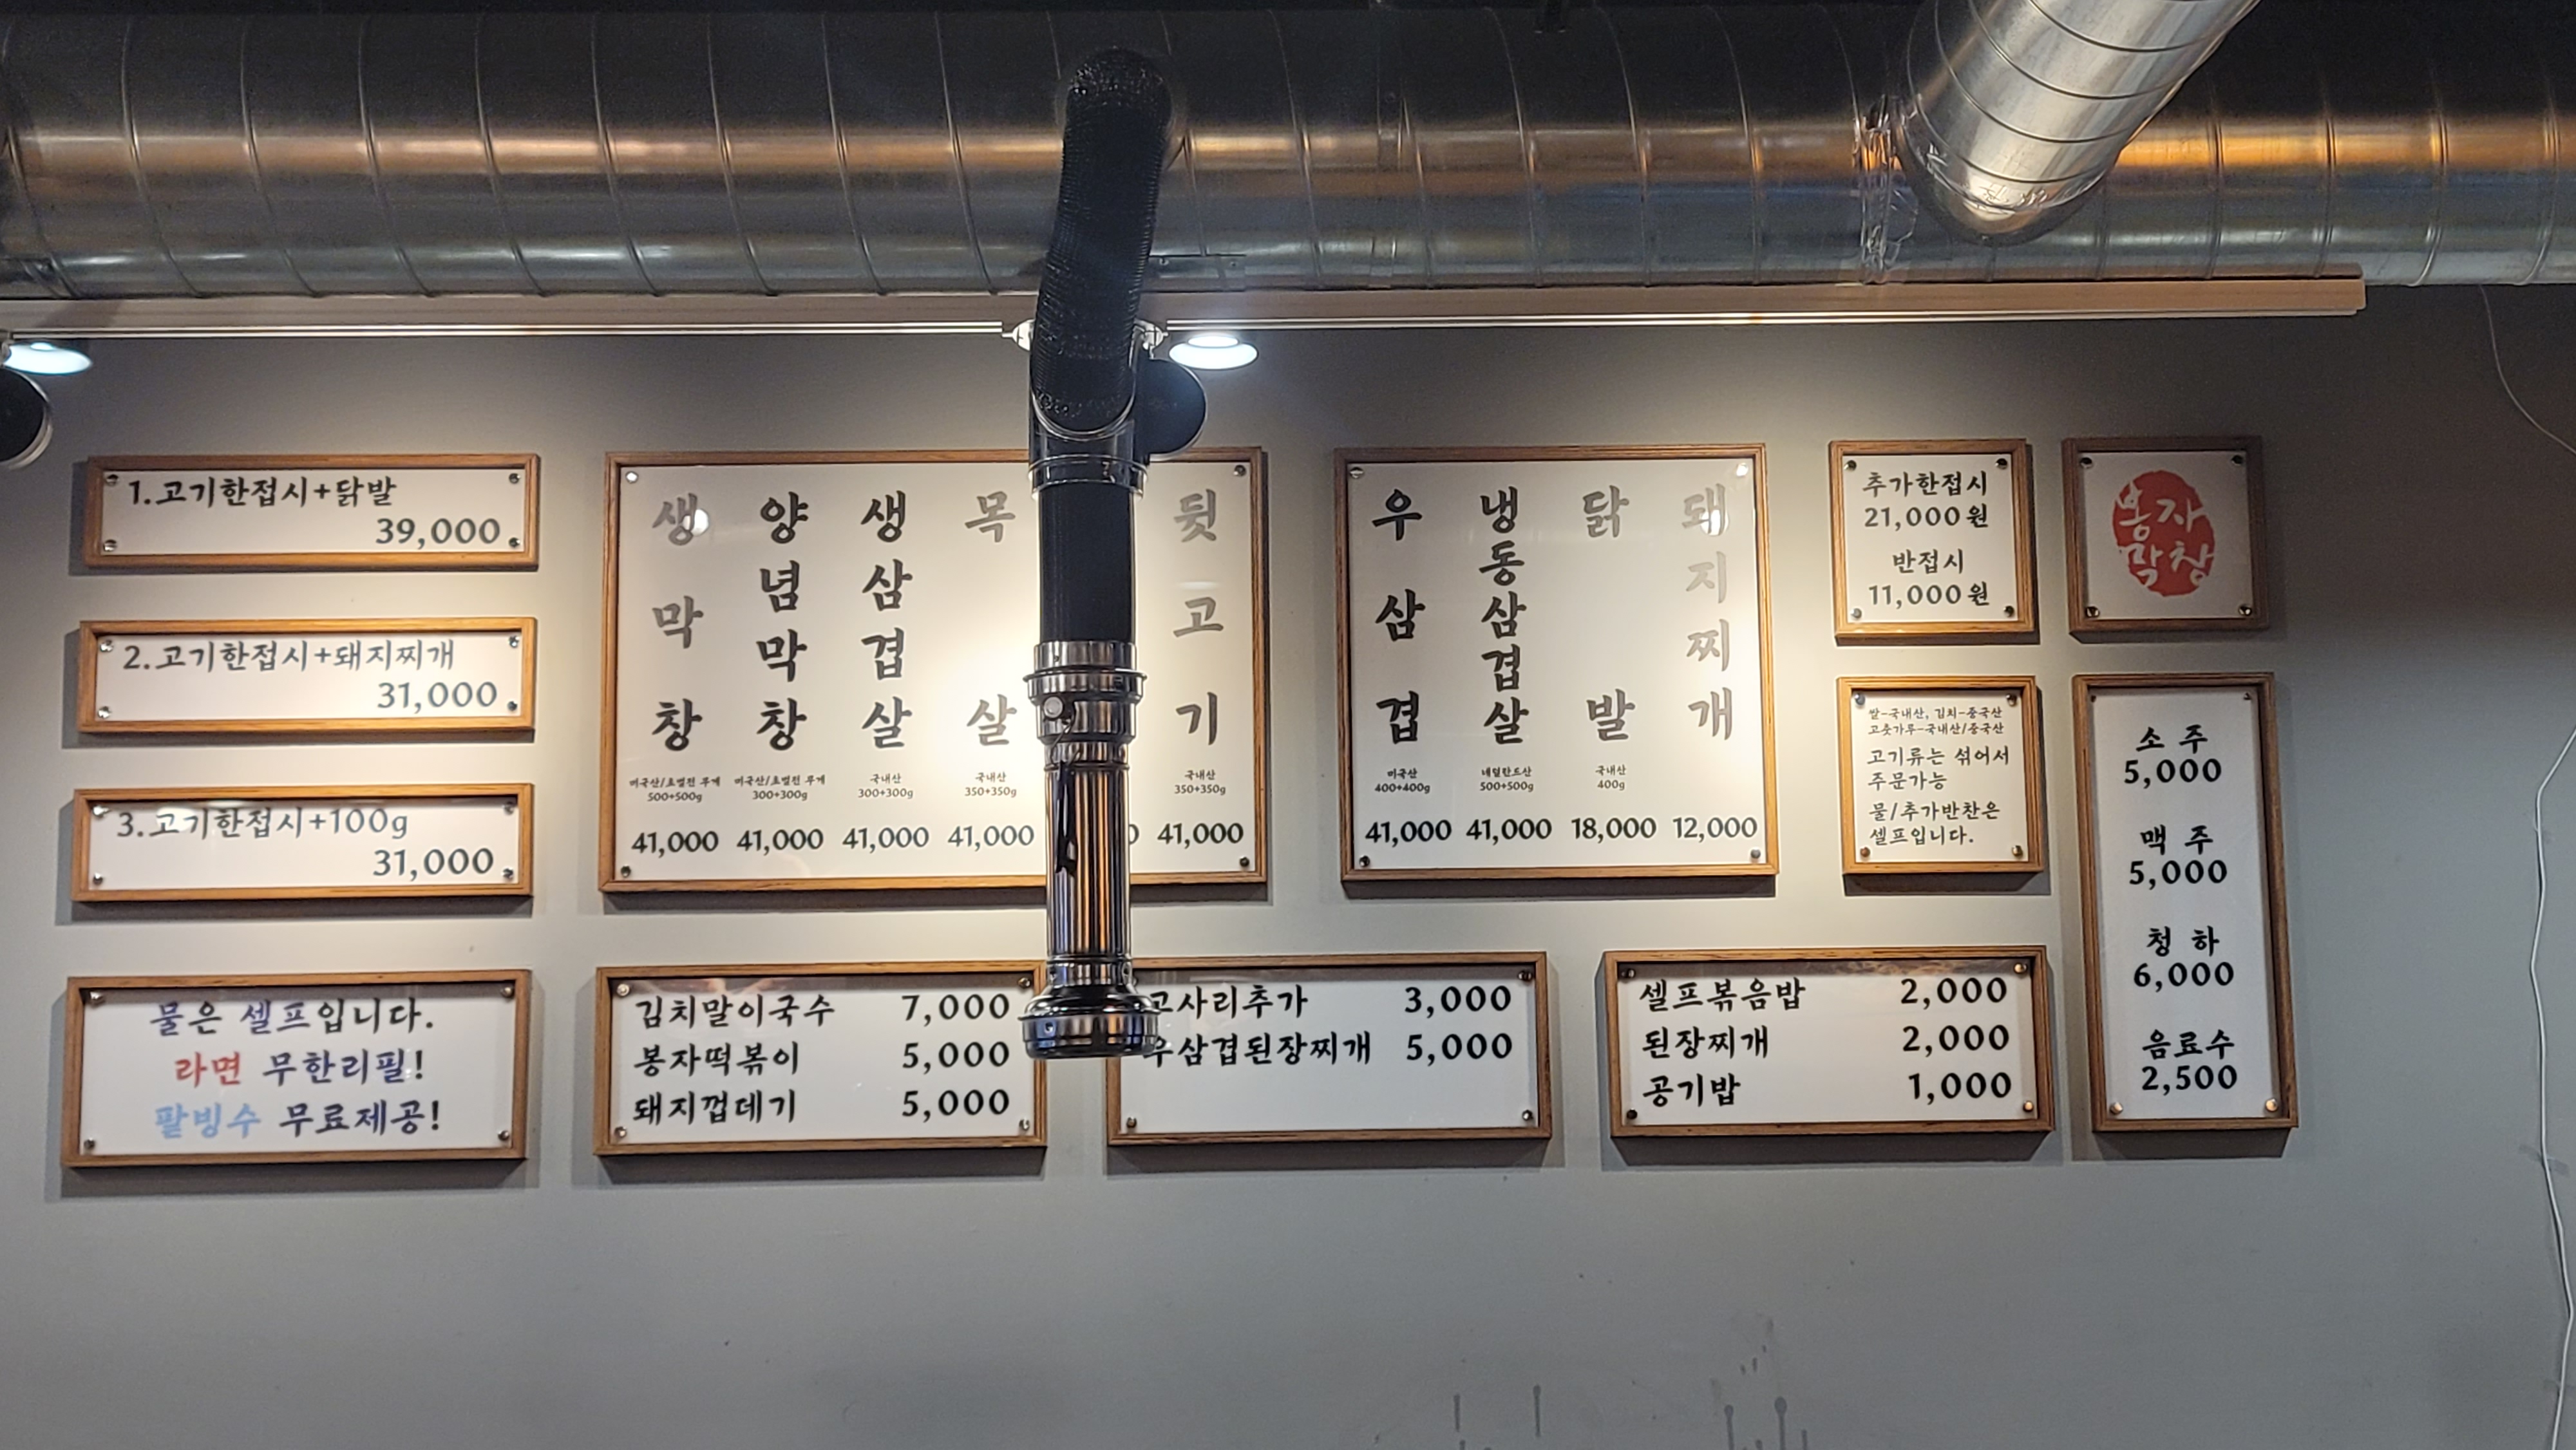 1.고기한접시+닭발
39,000
2.고기한접시+돼지찌개
31,000
3.고기한접시+100g
31,000
물은 셀프입니다.
라면 무한리필!
팥빙수 무료제공!
생막창
미국산/초벌전 무게
500+500g
41,000
양념막창
미국산/초벌전 무게
300+300g
41,000
생삼겹살
국내산
300+300g
41,000
목살
국내산
350+350g
41,000
뒷고기
국내산
350+350g
41,000
우삼겹
미국산
400+400g
41,000
냉동삼겹살
네덜란드산
500+500g
41,000
닭발
국내산
400g
18,000
돼지찌개
12,000
추가한접시
21,000원
반접시
11,000원
봉자
막창
쌀-국내산, 김치-중국산
고춧가루-국내산/중국산
고기류는 섞어서
주문가능
물/추가반찬은
셀프입니다.
김치말이국수 7,000
봉자떡볶이 5,000
돼지껍데기 5,000
고사리추가 3,000
우삼겹된장찌개 5,000
셀프볶음밥 2,000
된장찌개 2,000
공기밥 1,000
소주
5,000
맥주
5,000
청하
6,000
음료수
2,500